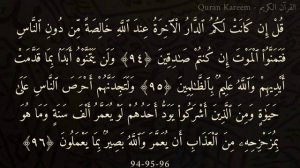 Quran Kareem - القرآن الكريم
قُلْ إِن كَانَتْ لَكُمُ الدَّارُ الْآخِرَةُ عِندَ اللَّهِ خَالِصَةً مِّن دُونِ النَّاسِ
فَتَمَنَّوُا الْمَوْتَ إِن كُنتُمْ صَادِقِينَ ﴿٩٤﴾ وَلَن يَتَمَنَّوْهُ أَبَدًا بِمَا قَدَّمَتْ
أَيْدِيهِمْ وَاللَّهُ عَلِيمٌ بِالظَّالِمِينَ ﴿٩٥﴾ وَلَتَجِدَنَّهُمْ أَحْرَصَ النَّاسِ عَلَىٰ
حَيَاةٍ وَمِنَ الَّذِينَ أَشْرَكُوا يَوَدُّ أَحَدُهُمْ لَوْ يُعَمَّرُ أَلْفَ سَنَةٍ وَمَا هُوَ
بِمُزَحْزِحِهِ مِنَ الْعَذَابِ أَن يُعَمَّرَ وَاللَّهُ بَصِيرٌ بِمَا يَعْمَلُونَ ﴿٩٦﴾
94-95-96